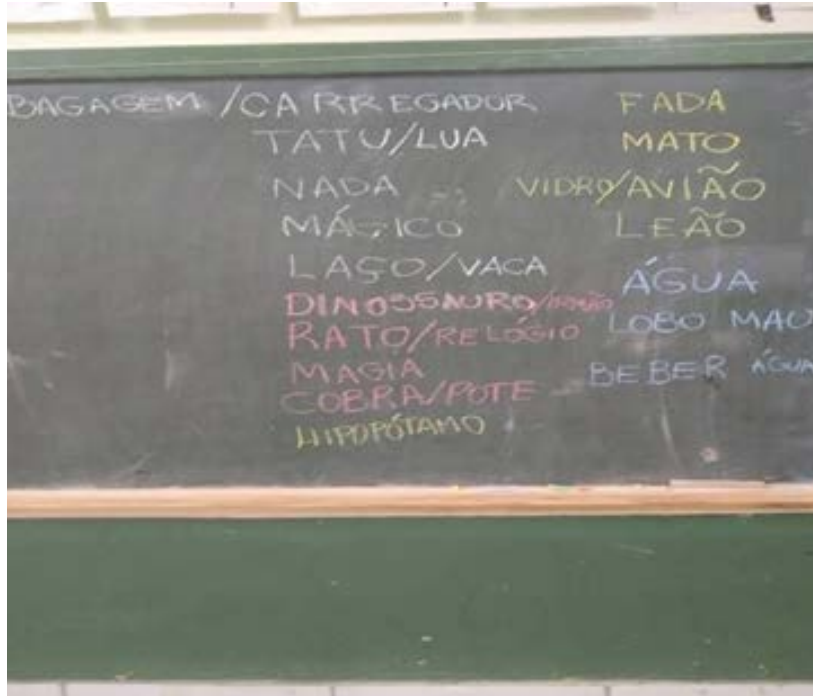 BAGAGEM /CARREGADOR
TATU/LUA
NADA
MÁGICO
LAÇO/VACA
DINOSSAURO/
RATO/RELÓGIO
MAGIA
COBRA/POTE
HIPOPÓTAMO
FADA
MATO
VIDRO/AVIÃO
LEÃO
ÁGUA
LOBO MAU
BEBER ÁGUA